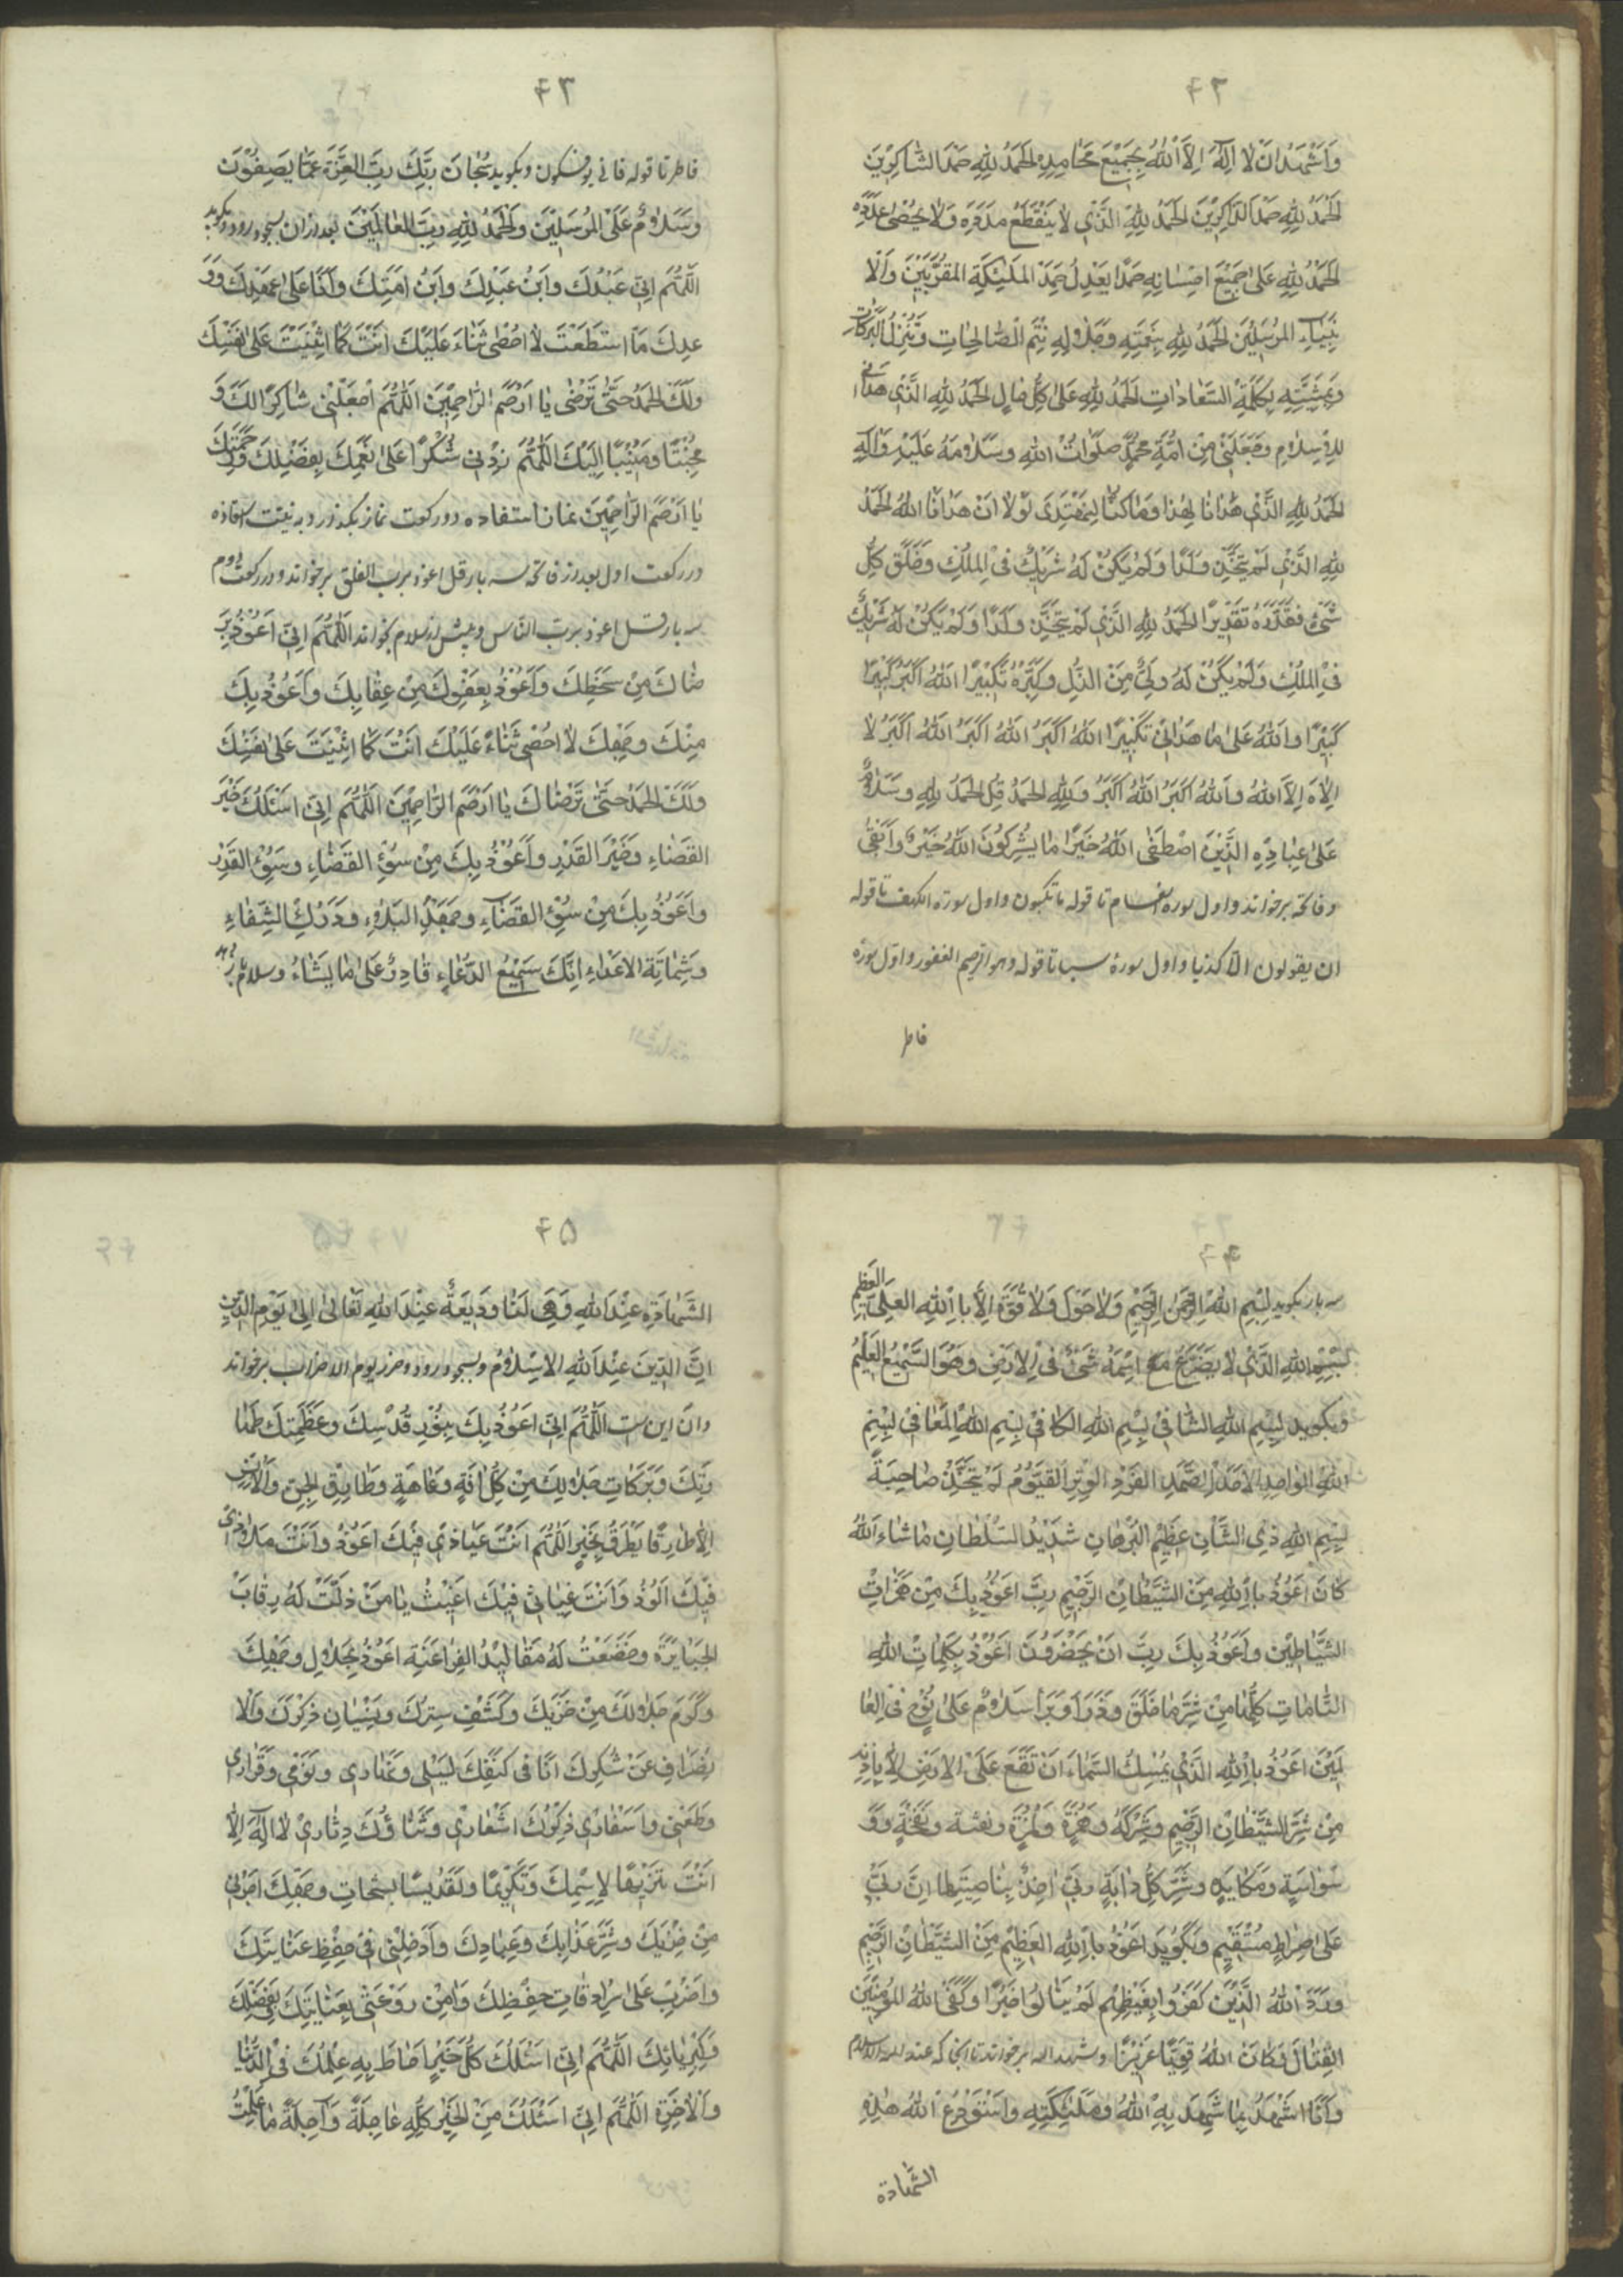 ۴۲
وَاَشْهَدُ اَنْ لَا اِلٰهَ اِلَّا اللهُ بِجَمِيْعِ مَحَامِدِهِ لْحَمْدُ لِلّٰهِ حَمْدَ الشَّاكِرِيْنَ
لْحَمْدُ لِلّٰهِ حَمْدَ الذَّاكِرِيْنَ لْحَمْدُ لِلّٰهِ الَّذِي لَا يَنْقَطِعُ مَدَدُهُ وَلَا يُحْصٰى عَدَدُهُ
لْحَمْدُ لِلّٰهِ عَلٰى جَمِيْعِ احْسَانِهِ حَمْدًا يَعْدِلُ حَمْدَ الْمَلٰئِكَةِ الْمُقَرَّبِيْنَ وَالْا
نْبِيَاءِ الْمُرْسَلِيْنَ لْحَمْدُ لِلّٰهِ بِنِعْمَتِهِ وَجَلَالِهِ تَتِمُّ الصَّالِحَاتِ وَتُنْزَلُ الْبَرَكَاتِ
وَبِمَشِيَّتِهِ بِكَلِمَةِ السَّعَادَاتِ لْحَمْدُ لِلّٰهِ عَلٰى كُلِّ حَالٍ لْحَمْدُ لِلّٰهِ الَّذِي هَدَانِي
لِلْاِسْلَامِ وَجَعَلَنِي مِنْ اُمَّةِ مُحَمَّدٍ صَلَوَاتُ اللهِ وَسَلَامُهُ عَلَيْهِ وَاٰلِهِ
لْحَمْدُ لِلّٰهِ الَّذِي هَدَانَا لِهٰذَا وَمَا كُنَّا لِنَهْتَدِيَ لَوْلَا اَنْ هَدَانَا اللهُ لْحَمْدُ
لِلّٰهِ الَّذِي لَمْ يَتَّخِذْ وَلَدًا وَلَمْ يَكُنْ لَهُ شَرِيْكٌ فِي الْمُلْكِ وَخَلَقَ كُلَّ
شَيْءٍ فَقَدَّرَهُ تَقْدِيْرًا لْحَمْدُ لِلّٰهِ الَّذِي لَمْ يَتَّخِذْ وَلَدًا وَلَمْ يَكُنْ لَهُ شَرِيْكٌ
فِي الْمُلْكِ وَلَمْ يَكُنْ لَهُ وَلِيٌّ مِنَ الذُّلِّ وَكَبِّرْهُ تَكْبِيْرًا اللهُ اَكْبَرُ كَبِيْرًا
كَبِيْرًا وَاللهُ عَلٰى مَا هَدَانِي تَكْبِيْرًا اللهُ اَكْبَرُ اللهُ اَكْبَرُ اللهُ اَكْبَرُ لَا
اِلٰهَ اِلَّا اللهُ وَاللهُ اَكْبَرُ اللهُ اَكْبَرُ وَلِلّٰهِ الْحَمْدُ قُلِ الْحَمْدُ لِلّٰهِ وَسَلَامٌ
عَلٰى عِبَادِهِ الَّذِيْنَ اصْطَفٰى اللهُ خَيْرًا مَا يُشْرِكُوْنَ اللهُ خَيْرٌ وَاَبْقٰى
وفاتحه برخواند واول سوره انعام تا قوله ما تكسبون واول سورة الكهف تا قوله
ان يقولون الا كذبا واول سورة سبا تا قوله وهو الرحيم الغفور واول سورة
فاطر
۴۳
فاطر تا قوله فانى يؤفكون وبگويد سُبْحَانَ رَبِّكَ رَبِّ الْعِزَّةِ عَمَّا يَصِفُوْنَ
وَسَلَامٌ عَلَى الْمُرْسَلِيْنَ وَالْحَمْدُ لِلّٰهِ رَبِّ الْعَالَمِيْنَ بعد ازان بسجود رود وبگويد
اَللّٰهُمَّ اِنِّي عَبْدُكَ وَابْنُ عَبْدِكَ وَابْنُ اَمَتِكَ وَاَنَا عَلٰى عَهْدِكَ وَوَ
عْدِكَ مَا اسْتَطَعْتُ لَا اُحْصِي ثَنَاءً عَلَيْكَ اَنْتَ كَمَا اَثْنَيْتَ عَلٰى نَفْسِكَ
وَلَكَ الْحَمْدُ حَتّٰى تَرْضٰى يَا اَرْحَمَ الرَّاحِمِيْنَ اَللّٰهُمَّ اجْعَلْنِي شَاكِرًا لَكَ وَ
مُخْبِتًا وَمُنِيْبًا اِلَيْكَ اَللّٰهُمَّ زِدْنِي شُكْرًا عَلٰى نِعَمِكَ بِفَضْلِكَ وَرَحْمَتِكَ
يَا اَرْحَمَ الرَّاحِمِيْنَ نماز استعاذه دو ركعت نماز بگذارد به نيت استعاذه
در ركعت اول بعد از فاتحه سه بار قل اعوذ برب الفلق برخواند ودر ركعت دوم
سه بار قل اعوذ برب الناس وپيش از سلام بخواند اَللّٰهُمَّ اِنِّي اَعُوْذُ بِرِ
ضَاكَ مِنْ سَخَطِكَ وَاَعُوْذُ بِعَفْوِكَ مِنْ عِقَابِكَ وَاَعُوْذُ بِكَ
مِنْكَ وَجْهِكَ لَا اُحْصِي ثَنَاءً عَلَيْكَ اَنْتَ كَمَا اَثْنَيْتَ عَلٰى نَفْسِكَ
وَلَكَ الْحَمْدُ حَتّٰى تَرْضَاكَ يَا اَرْحَمَ الرَّاحِمِيْنَ اَللّٰهُمَّ اِنِّي اَسْئَلُكَ خَيْرَ
الْقَضَاءِ وَخَيْرَ الْقَدْرِ وَاَعُوْذُ بِكَ مِنْ سُوْءِ الْقَضَاءِ وَسُوْءِ الْقَدْرِ
وَاَعُوْذُ بِكَ مِنْ سُوْءِ الْقَضَاءِ وَجَهْدِ الْبَلَاءِ وَدَرَكِ الشَّقَاءِ
وَشَمَاتَةِ الْاَعْدَاءِ اِنَّكَ سَمِيْعُ الدُّعَاءِ قَادِرٌ عَلٰى مَا يَشَاءُ وسلام باز دهد
۴۴
سه بار بگويد بِسْمِ اللهِ الرَّحْمٰنِ الرَّحِيْمِ وَلَا حَوْلَ وَلَا قُوَّةَ اِلَّا بِاللهِ الْعَلِيِّ الْعَظِيْمِ
بِسْمِ اللهِ الَّذِي لَا يَضُرُّ مَعَ اسْمِهِ شَيْءٌ فِي الْاَرْضِ وَهُوَ السَّمِيْعُ الْعَلِيْمُ
وبگويد بِسْمِ اللهِ الشَّافِي بِسْمِ اللهِ الْكَافِي بِسْمِ اللهِ الْمُعَافِي بِسْمِ
اللهِ الْوَاحِدِ الْاَحَدِ الصَّمَدِ الْفَرْدِ الْوِتْرِ الْقَيُّوْمِ لَمْ يَتَّخِذْ صَاحِبَةً
بِسْمِ اللهِ ذِي الشَّاْنِ عَظِيْمِ الْبُرْهَانِ شَدِيْدِ السُّلْطَانِ مَا شَاءَ اللهُ
كَانَ اَعُوْذُ بِاللهِ مِنَ الشَّيْطَانِ الرَّجِيْمِ رَبِّ اَعُوْذُ بِكَ مِنْ هَمَزَاتِ
الشَّيَاطِيْنِ وَاَعُوْذُ بِكَ رَبِّ اَنْ يَحْضُرُوْنَ اَعُوْذُ بِكَلِمَاتِ اللهِ
التَّامَّاتِ كُلِّهَا مِنْ شَرِّ مَا خَلَقَ وَذَرَاَ وَبَرَاَ سَلَامٌ عَلٰى نُوْحٍ فِي الْعَا
لَمِيْنَ اَعُوْذُ بِاللهِ الَّذِي يُمْسِكُ السَّمَاءَ اَنْ تَقَعَ عَلَى الْاَرْضِ اِلَّا بِاِذْنِهِ
مِنْ شَرِّ الشَّيْطَانِ الرَّجِيْمِ وَشَرَكِهِ وَهَمْزِهِ وَلَمْزِهِ ونفثه وَنَفْخِهِ وَوَ
سْوَاسِهِ وَمَكَايِدِهِ وَشَرِّ كُلِّ دَابَّةٍ رَبِّي اٰخِذٌ بِنَاصِيَتِهَا اِنَّ رَبِّي
عَلٰى صِرَاطٍ مُسْتَقِيْمٍ وَبگويد اَعُوْذُ بِاللهِ الْعَظِيْمِ مِنَ الشَّيْطَانِ الرَّجِيْمِ
وَرَدَّ اللهُ الَّذِيْنَ كَفَرُوْا بِغَيْظِهِمْ لَمْ يَنَالُوْا خَيْرًا وَكَفَى اللهُ الْمُؤْمِنِيْنَ
الْقِتَالَ وَكَانَ اللهُ قَوِيًّا عَزِيْزًا وشهد الله برخواند تا انجا كه عند الله الاسلام
وَاَنَا اَشْهَدُ بِمَا شَهِدَ بِهِ اللهُ وَمَلٰئِكَتِهِ وَاَسْتَوْدِعُ اللهَ هٰذِهِ
الشَّهَادَة
۴۵
الشَّهَادَةِ عِنْدَ اللهِ وَهِيَ لَنَا وَدِيْعَةٌ عِنْدَ اللهِ تَعَالٰى اِلٰى يَوْمِ الدِّيْنِ
اِنَّ الدِّيْنَ عِنْدَ اللهِ الْاِسْلَامُ وبسجود رود وحرز يوم الاحزاب برخواند
وان اين ست اَللّٰهُمَّ اِنِّي اَعُوْذُ بِكَ بِنُوْرِ قُدْسِكَ وَعَظَمَتِكَ طَهَا
رَتِكَ وَبَرَكَاتِ جَلَالِكَ مِنْ كُلِّ اٰفَةٍ وَعَاهَةٍ وَطَارِقِ الْجِنِّ وَالْاِنْسِ
اِلَّا طَارِقًا يَطْرُقُ بِخَيْرٍ اَللّٰهُمَّ اَنْتَ عِيَاذِي فَبِكَ اَعُوْذُ وَاَنْتَ مَلَاذِي
فَبِكَ اَلُوْذُ وَاَنْتَ غِيَاثِي فَبِكَ اَغِيْثُ يَا مَنْ ذَلَّتْ لَهُ رِقَابُ
الْجَبَابِرَةِ وَخَضَعَتْ لَهُ مَقَالِيْدُ الْفَرَاعَنَةِ اَعُوْذُ بِجَلَالِ وَجْهِكَ
وَكَرَمِ جَلَالِكَ مِنْ خِزْيِكَ وَكَشْفِ سِتْرِكَ وَنِسْيَانِ ذِكْرِكَ وَالْا
نْصِرَافِ عَنْ شُكْرِكَ اَنَا فِي كَنَفِكَ لَيْلِي وَنَهَارِي وَنَوْمِي وَقَرَارِي
وَظَعْنِي وَاَسْفَارِي ذِكْرُكَ اشْعَارِي وَثَنَاؤُكَ دِثَارِي لَا اِلٰهَ اِلَّا
اَنْتَ تَنْزِيْهًا لِاِسْمِكَ وَتَكْرِيْمًا وَتَقْدِيْسًا بسبحات وَجْهِكَ اَجِرْنِي
مِنْ خِزْيِكَ وَشَرِّ عَذَابِكَ وَعِبَادِكَ وَاَدْخِلْنِي فِي حِفْظِ عِنَايَتِكَ
وَاضْرِبْ عَلَى سُرَادِقَاتِ حِفْظِكَ وَاٰمِنْ رَوْعَتِي بِعِنَايَتِكَ بِفَضْلِكَ
وَكِبْرِيَائِكَ اَللّٰهُمَّ اِنِّي اَسْئَلُكَ كُلَّ خَيْرٍ اَحَاطَ بِهِ عِلْمُكَ فِي الدُّنْيَا
وَالْاٰخِرَةِ اَللّٰهُمَّ اِنِّي اَسْئَلُكَ مِنَ الْخَيْرِ كُلِّهِ عَاجِلَةً وَاٰجِلَةً مَا عَلِمْتُ